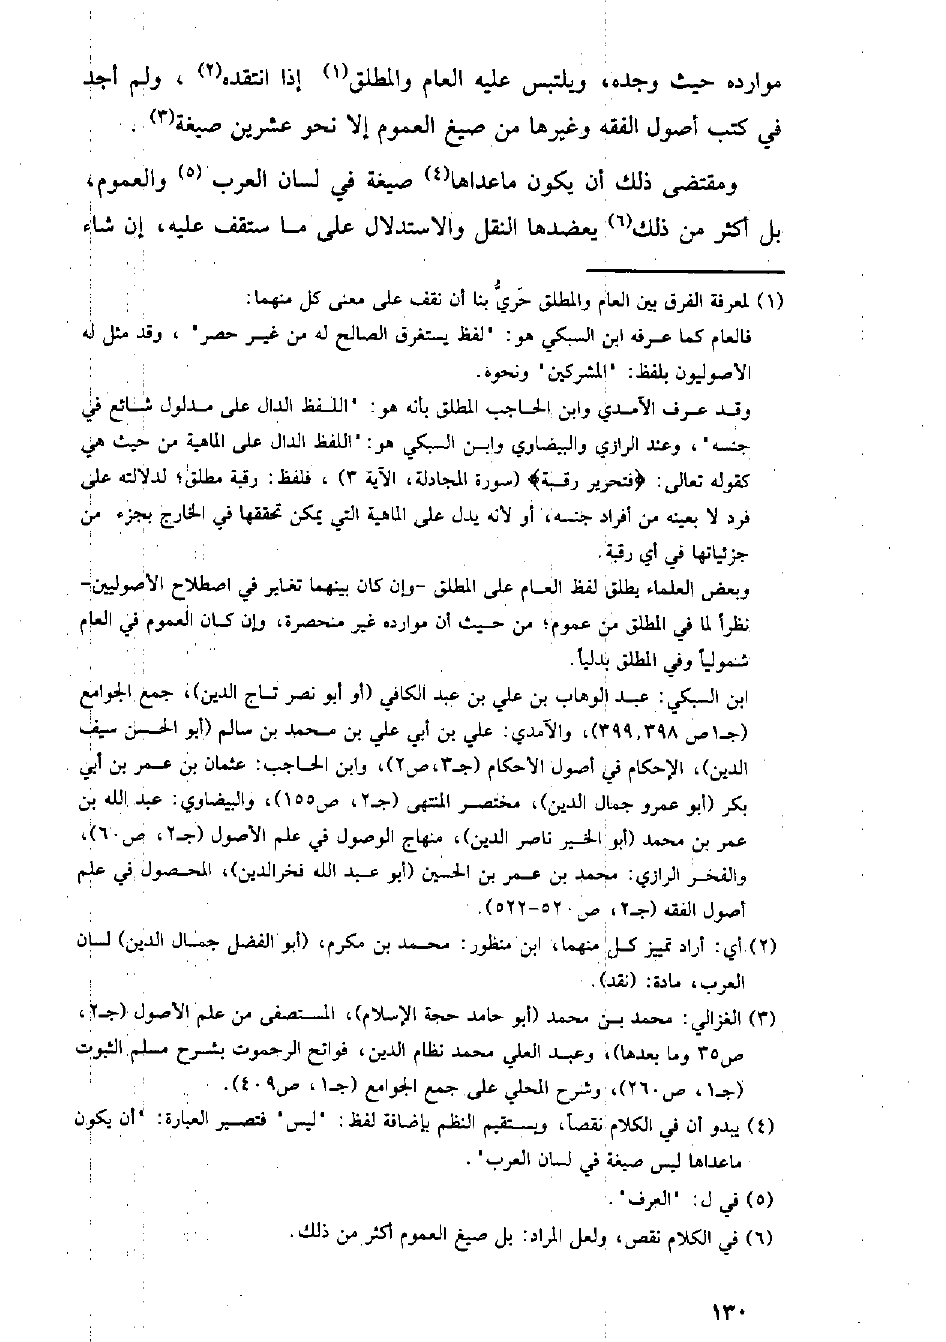 موارده حيث وجده، ويلتبس عليه العام والمطلق(١) إذا انتقده(٢) ، ولم أجد
في كتب أصول الفقه وغيرها من صيغ العموم إلا نحو عشرين صيغة(٣) .
ومقتضى ذلك أن يكون ماعداها(٤) صيغة في لسان العرب (٥) والعموم،
بل أكثر من ذلك(٦) يعضدها النقل والاستدلال على ما ستقف عليه، إن شاء
(١) لمعرفة الفرق بين العام والمطلق حَريٌّ بنا أن نقف على معنى كل منهما:
فالعام كما عرفه ابن السبكي هو: "لفظ يستغرق الصالح له من غير حصر" ، وقد مثل له
الأصوليون بلفظ: "المشركين" ونحوه.
وقد عرف الآمدي وابن الحاجب المطلق بأنه هو: "اللفظ الدال على مدلول شائع في
جنسه" ، وعند الرازي والبيضاوي وابن السبكي هو: "اللفظ الدال على الماهية من حيث هي
كقوله تعالى: ﴿فتحرير رقبة﴾ (سورة المجادلة، الآية ٣) ، فلفظ: رقبة مطلق؛ لدلالته على
فرد لا بعينه من أفراد جنسه، أو لأنه يدل على الماهية التي يمكن تحققها في الخارج بجزء من
جزئياتها في أي رقبة.
وبعض العلماء يطلق لفظ العام على المطلق -وإن كان بينهما تغاير في اصطلاح الأصوليين-
نظراً لما في المطلق من عموم؛ من حيث أن موارده غير منحصرة، وإن كان العموم في العام
شمولياً وفي المطلق بدلياً.
ابن السبكي: عبد الوهاب بن علي بن عبد الكافي (أو أبو نصر تاج الدين)، جمع الجوامع
(جـ١ص ٣٩٩,٣٩٨)، والآمدي: علي بن أبي علي بن محمد بن سالم (أبو الحسن سيف
الدين)، الإحكام في أصول الأحكام (جـ٣،ص٢)، وابن الحاجب: عثمان بن عمر بن أبي
بكر (أبو عمرو جمال الدين)، مختصر المنتهى (جـ٢، ص١٥٥)، والبيضاوي: عبد الله بن
عمر بن محمد (أبو الخير ناصر الدين)، منهاج الوصول في علم الأصول (جـ٢، ص٦٠)،
والفخر الرازي: محمد بن عمر بن الحسين (أبو عبد الله فخرالدين)، المحصول في علم
أصول الفقه (جـ٢، ص٥٢٠-٥٢٢).
(٢) أي: أراد تمييز كل منهما، ابن منظور: محمد بن مكرم، (أبو الفضل جمال الدين) لسان
العرب، مادة: (نقد).
(٣) الغزالي: محمد بن محمد (أبو حامد حجة الإسلام)، المستصفى من علم الأصول (جـ٢،
ص٣٥ وما بعدها)، وعبد العلي محمد نظام الدين، فواتح الرحموت بشرح مسلم الثبوت
(جـ١، ص٢٦٠)، وشرح المحلي على جمع الجوامع (جـ١، ص٤٠٩).
(٤) يبدو أن في الكلام نقصاً، ويستقيم النظم بإضافة لفظ: "ليس" فتصير العبارة: "أن يكون
ماعداها ليس صيغة في لسان العرب" .
(٥) في ل: "العرف" .
(٦) في الكلام نقص، ولعل المراد: بل صيغ العموم أكثر من ذلك.
١٣٠